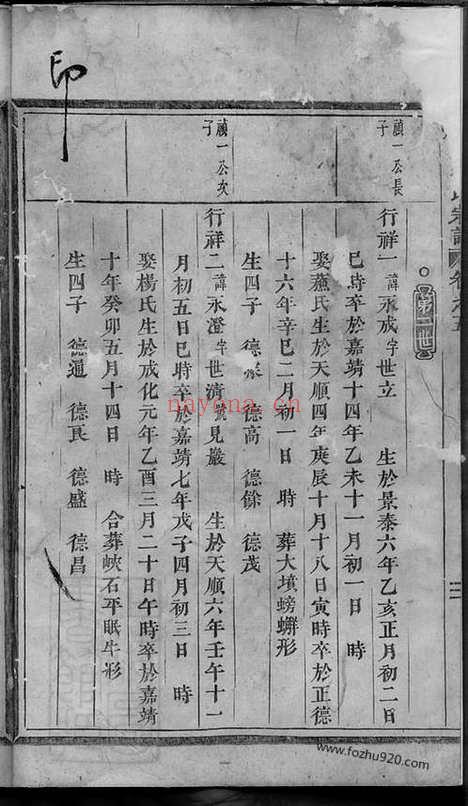 印
氏宗譜 卷之五
第二世
禎一公長子
行祥一諱永戒字世立 生於景泰六年乙亥正月初二日
巳時卒於嘉靖十四年乙未十一月初一日 時
娶蕭氏生於天順四年庚辰十月十八日寅時卒於正德
十六年辛巳二月初一日 時 葬大墳螃蠏形
生四子 德 德高 德餘 德茂
禎一公次子
行祥二諱永澄字世清號見巖 生於天順六年壬午十一
月初五日巳時卒於嘉靖七年戊子四月初三日 時
娶楊氏生於成化元年乙酉三月二十日午時卒於嘉靖
十年癸卯五月十四日 時 合葬峽石平眠牛形
生四子 德通 德良 德盛 德昌
nayona.cn
www.fozhu920.com